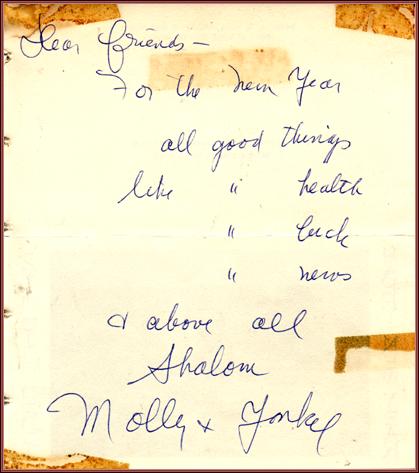 Dear friends –
For the new Year
all good things
like " health
" luck
" news
& above all
Shalom
Molly + Yonkel